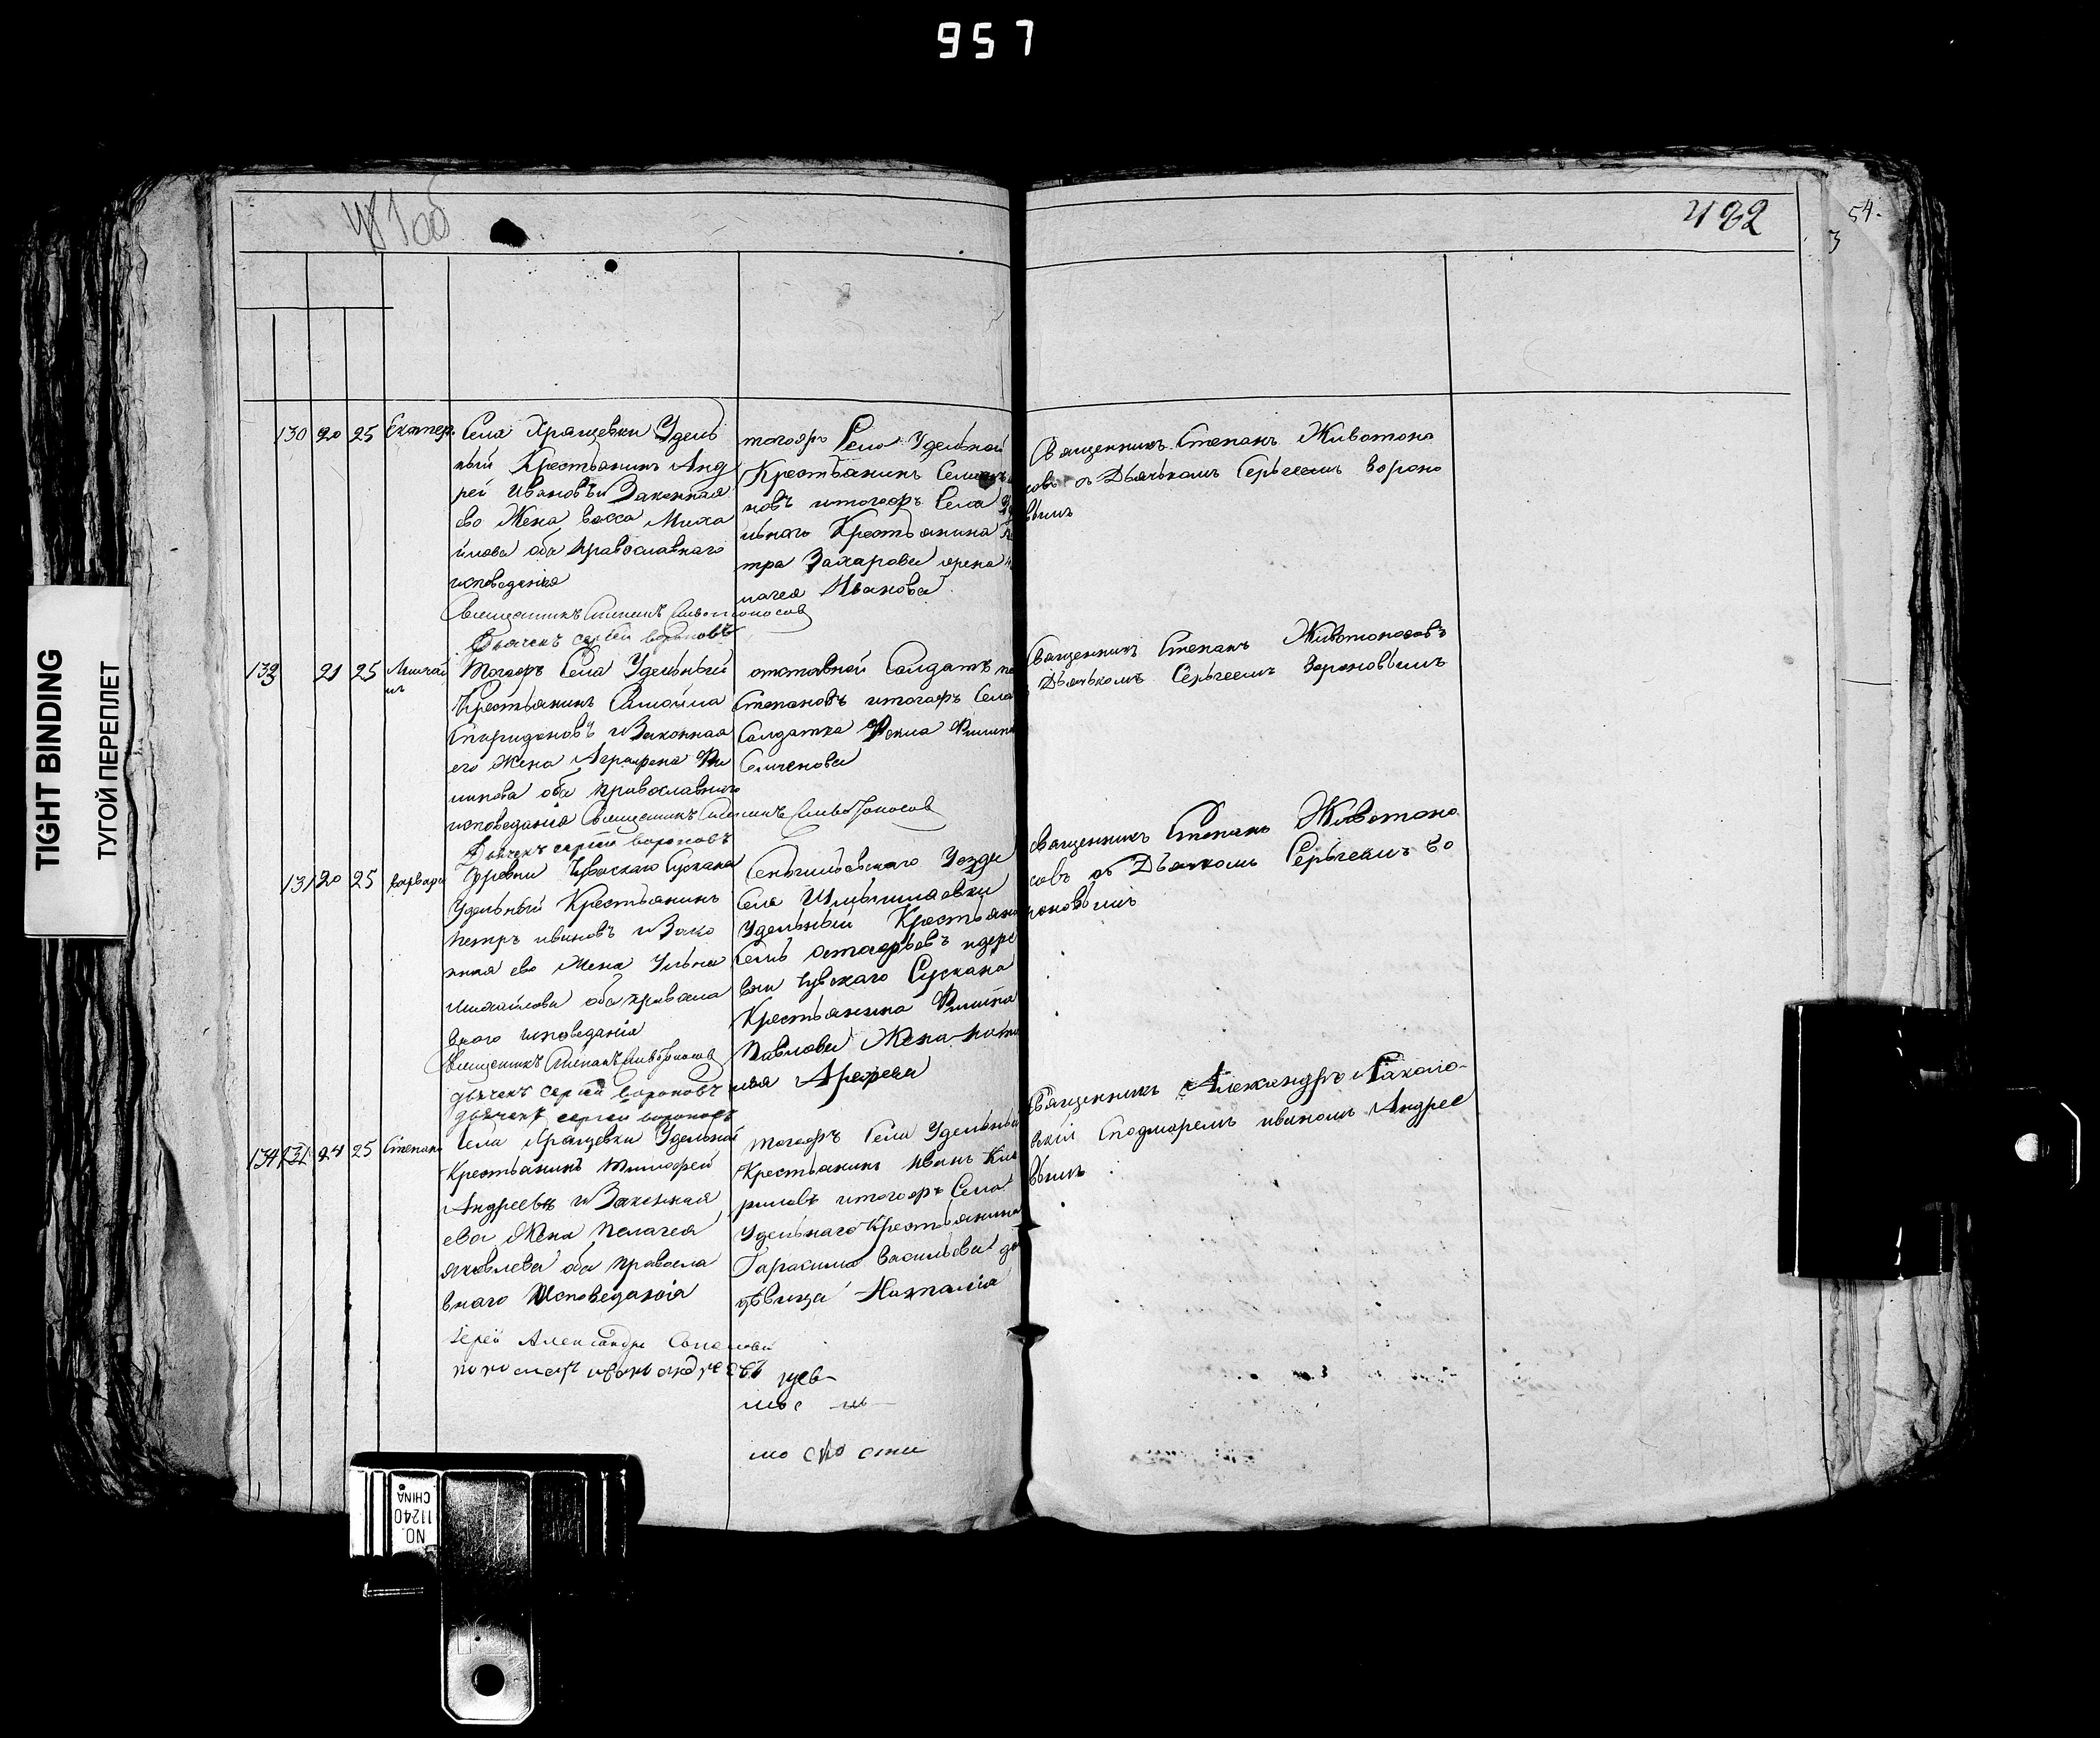 957
TIGHT BINDING
ТУГОЙ ПЕРЕПЛЕТ
481об
482
54.
3
130 20 25 Екатер.
Села Хрящевки Удель
ный Крестьянинъ Анд
рей Ивановъ и Законная
ево Жена Васса Миха
йлова оба православнаго
исповеданiя
Священникъ Степанъ Животоносов
Дьячекъ сергей вороновъ
тогожъ Села Удельной
Крестьянинъ
новъ итогожъ Села
льнаго Крестьянина
тра Захарова жена
лагея Иванова
Священникъ Степанъ Животоно
совъ съ Дьячькомъ Серьгеемъ вороно
вымъ
132 21 25 Михаи
лъ
Тогожъ Села Удельный
Крестьянинъ Самойла
Спиридоновъ и Законная
его Жена Аграфена Фи
липова оба православного
исповедания Священникъ Степанъ Животоносов
Дьячекъ сергей вороновъ
отставной Салдатъ
Степановъ итогожъ Села
Салдатка Фекла
Семенова
Священникъ Степанъ Животоносовъ
Дьячькомъ Серьгеемъ Вороновымъ
131 20 25 варвара
Деревни Чувскаго Сускана
Удельный Крестьянинъ
петръ ивановъ и Зако
нная ево Жена Ульяна
михайлова оба правосла
внаго исповедания
Священникъ Степанъ Животоносов
дьячекъ сергей вороновъ
дьячекъ сергей вороновъ
Сенгилеевскаго Уезда
Села
Удельный Крестьяни
остафьевъ идере
вни Чувскаго Сускана
Крестьянина Филипа
Павлова Жена ната
лья Арефева
Священникъ Степанъ Животоно
совъ съ Дьячкомъ Серьгеемъ Во
роновымъ
134 131 24 25 Степанъ
Села Хрящевки Удельной
Крестьянинъ Тимофей
Андреевъ и Законная
ево Жена Пелагея
яковлева оба правосла
внаго Исповедания
Iерей Александръ
пономарь иванъ андреевъ
тогожъ Села Удельный
Крестьянинъ Иванъ Ки
риловъ итогожъ Села
Удельнаго Крестьянина
Гарасима Васильева до
девица Наталiя
Священникъ Александръ
вскiй Спонамаремъ иваномъ Андрее
вымъ
NO.
11240
CHINA